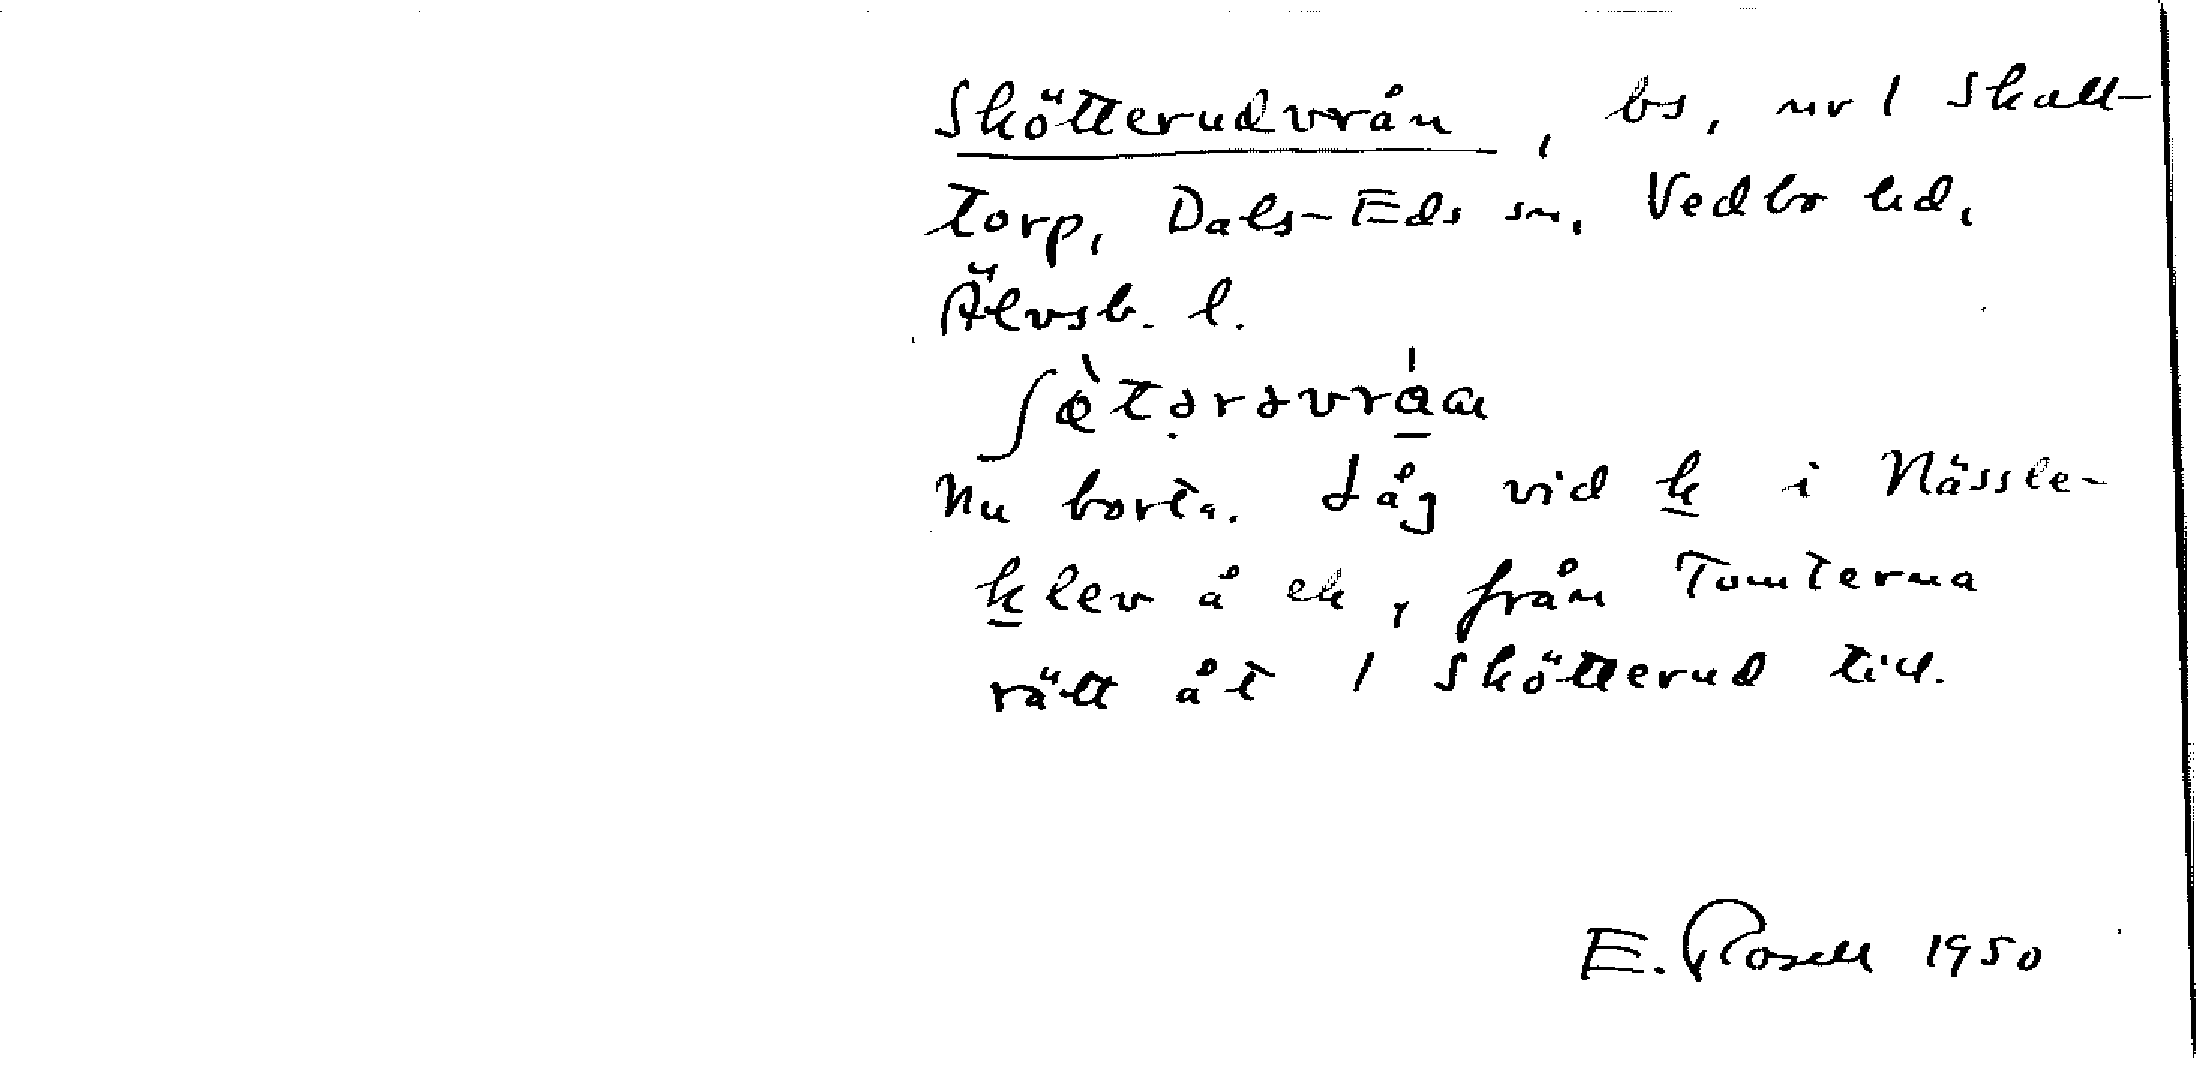 Skötterudvrån, bs, nr 1 Skall-
torp, Dals-Eds sn, Vedbo hd,
Älvsb. l.
Nu borta. Låg vid k i Nässle-
klev å ek, från Tomterna
rätt åt 1 Skötterud till.
E. Rosell 1950